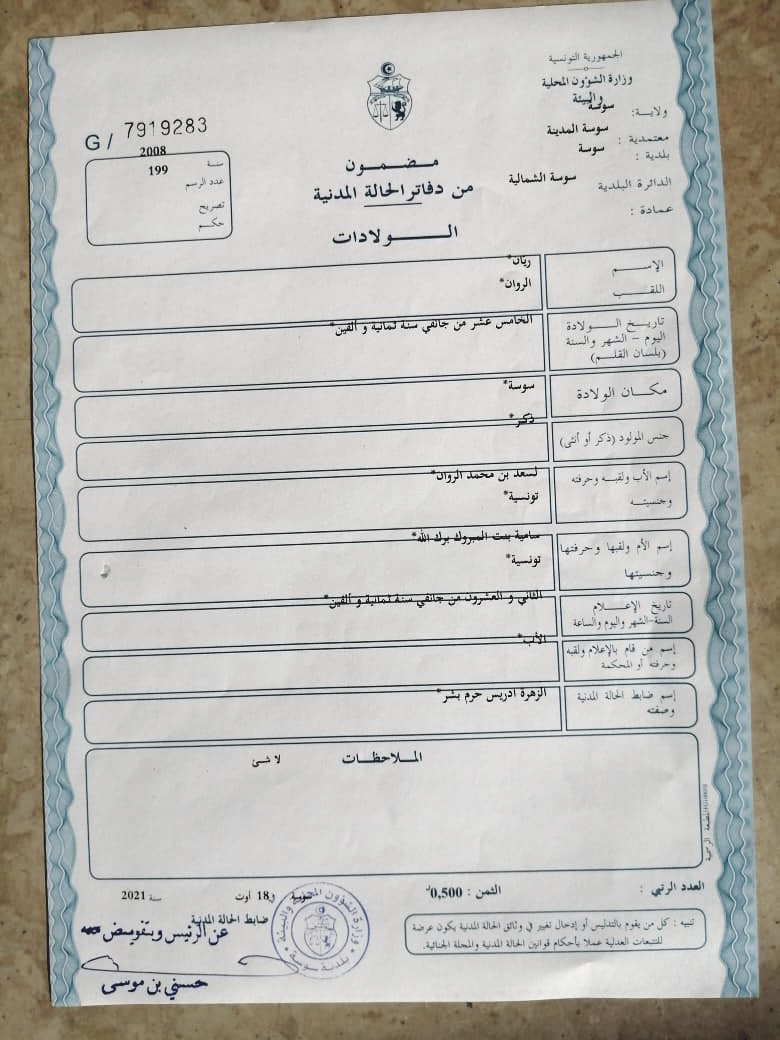 الجمهورية التونسية
وزارة الشؤون المحلية
والبيئة
ولاية: سوسة
معتمدية : سوسة المدينة
بلدية : سوسة
الدائرة البلدية سوسة الشمالية
عمادة :
G / 7919283
سنة 2008
عدد الرسم 199
تصريح
حكم
مضمون
من دفاتر الحالة المدنية
الولادات
الإسم ريان*
اللقب الروان*
تاريخ الولادة
اليوم – الشهر والسنة
(بلسان القلم)
الخامس عشر من جانفي سنة ثمانية و ألفين*
مكان الولادة سوسة*
جنس المولود (ذكر أو أنثى) ذكر*
إسم الأب ولقبه وحرفته لسعد بن محمد الروان*
وجنسيته تونسية*
إسم الأم ولقبها وحرفتها سامية بنت المبروك برك الله*
وجنسيتها تونسية*
تاريخ الإعلام
السنة-الشهر واليوم والساعة
الثاني و العشرون من جانفي سنة ثمانية و ألفين*
إسم من قام بالإعلام ولقبه
وحرفته أو المحكمة
الأب*
إسم ضابط الحالة المدنية
وصفته
الزهرة ادريس حرم بشر*
الملاحظات
لا شئ
المطبعة الرسمية
العدد الرتبي :
الثمن : 0,500د
سوسة في 18 أوت سنة 2021
ضابط الحالة المدنية
عن الرئيس وبتفويض منه
حسني بن موسى
وزارة الشؤون المحلية والبيئة
بلدية سوسة
تنبيه : كل من يقوم بالتدليس أو إدخال تغيير في وثائق الحالة المدنية يكون عرضة
للتتبعات العدلية عملا بأحكام قوانين الحالة المدنية والمجلة الجنائية.